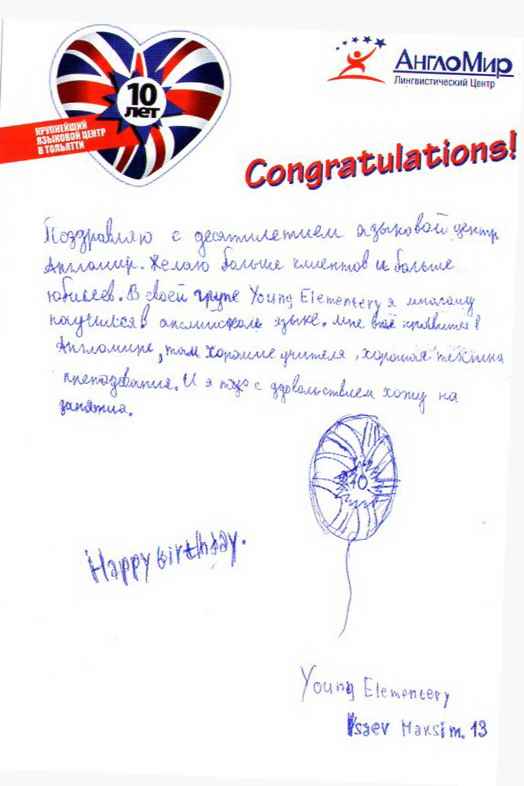 10
ЛЕТ
КРУПНЕЙШИЙ
ЯЗЫКОВОЙ ЦЕНТР
В ТОЛЬЯТТИ
АнглоМир
Лингвистический Центр
Congratulations!
Поздравляю с десятилетием языковой центр
Англомир. Желаю больше клиентов и больше
юбилеев. В своей групе Young Elementery я многому
научился в английском языке. Мне всё нравится в
Англомире, там хорошие учителя, хорошая техника
преподования. И я с удовольствием хожу на
занятия.
10
Happy birthday.
Young Elementery
Isaev Maksim. 13